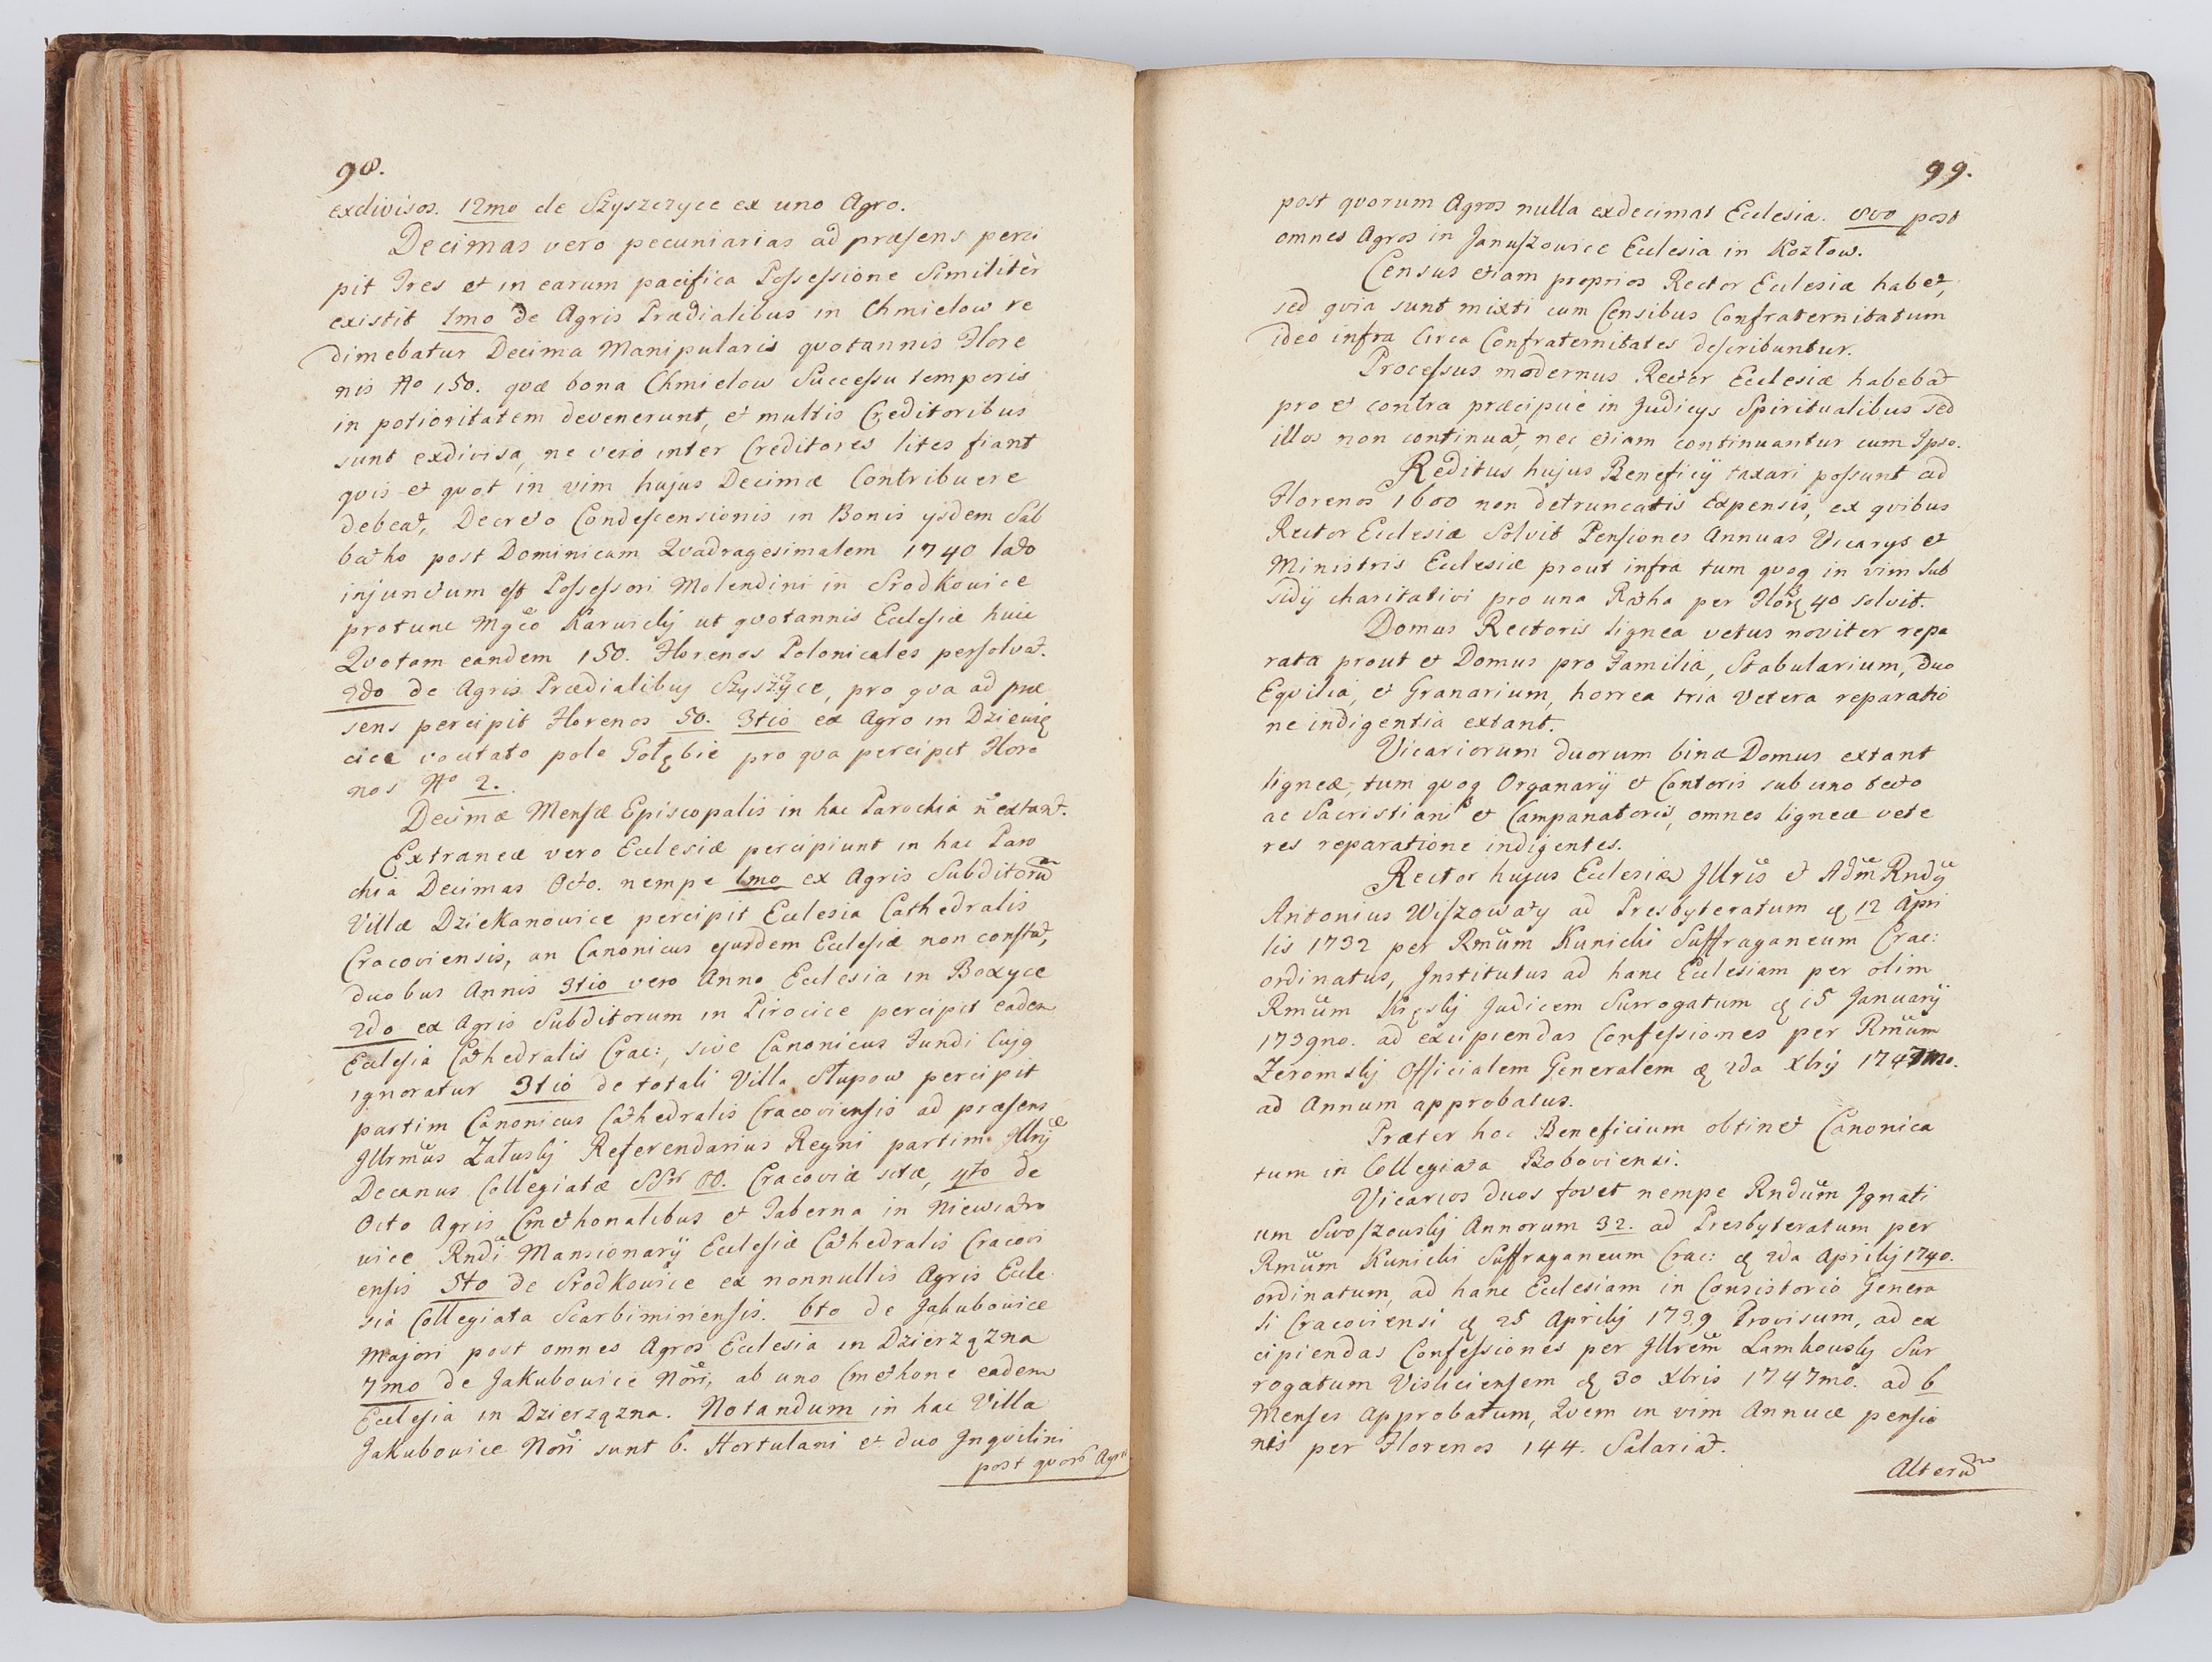 98.
exdivisos. 12mo de Szyszczyce ex uno Agro.
Decimas vero pecuniarias ad præsens perci
pit Tres et in earum pacifica Possessione Similitèr
existit 1mo de Agris Prædialibus in Chmielow re
dimebatur Decima Manipularis quotannis Flore
nis No 150. quæ bona Chmielow Successu temporis
in potioritatem devenerunt, et multis Creditoribus
sunt exdivisa, ne verò inter Creditores lites fiant
quis et quot in vim hujus Decimæ Contribuere
debeat, Decreto Condescensionis in Bonis ijsdem Sab
batho post Dominicam Quadragesimalem 1740 lato
injunctum est Possessori Molendini in Srodkowice
protunc Mgco Karwicky ut quotannis Ecclesiæ huic
Quotam eandem 150. Florenos Polonicales persolvat.
2do de Agris Prædialibus Szyszyce, pro qva ad præ
sens percipit Florenos 50. 3tio ex Agro in Dziewię
cice vocitato pole Gołębie pro qva percipit Flore
nos No 2.
Decimæ Mensæ Episcopalis in hac Parochia n extant.
Extraneæ vero Ecclesiæ percipiunt in hac Paro
chia Decimas Octo. nempe 1mo ex Agris Subditorū
Villæ Dziekanowice percipit Ecclesia Cathedralis
Cracoviensis, an Canonicus ejusdem Ecclesiæ non constat,
duobus Annis 3tio vero Anno Ecclesia in Boxyce
2do ex Agris Subditorum in Pirocice percipit eadem
Ecclesia Cathedralis Crac:, sive Canonicus Fundi Cujq
ignoratur 3tio de totali Villa Słupow percipit
partim Canonicus Cathedralis Cracoviensis ad præsens
Illrmus Załusky Referendarius Regni partim Illris
Decanus Collegiatæ SSr OO. Cracoviæ sitæ, 4to de
Octo Agris Cmethonalibus et Taberna in Niewiatro
wice Rndi Mansionarÿ Ecclesiæ Cathedralis Cracovi
ensis 5to de Srodkowice ex nonnullis Agris Eccle
sia Collegiata Scarbimiriensis. 6to de Jakubowice
Majori post omnes Agros Ecclesia in Dzierzązna
7mo de Jakubowice Nori, ab uno Cmethone eadem
Ecclesia in Dzierzązna. Notandum in hac Villa
Jakubowice Nori sunt 6. Hortulani et duo Inqvilini
post quors Agros
99.
post qvorum Agros nulla exdecimat Ecclesia. 8vo post
omnes Agros in Januszowice Ecclesia in Kozłow.
Census etiam proprios Rector Ecclesiæ habet,
sed qvia sunt mixti cum Censibus Confraternitatum
ideo infra Circa Confraternitates describuntur.
Processus modernus Rector Ecclesiæ habebat
pro et contra præcipuè in Judicijs Spiritualibus sed
illos non continuat, nec etiam continuantur cum Ipso.
Reditus hujus Beneficÿ taxari possunt ad
Florenos 1600 non detruncatis Expensis, ex qvibus
Rector Ecclesiæ Solvit Pensiones Annuas Vicarijs et
Ministris Ecclesiæ prout infra tum quoq in vim Sub
sidÿ charitativi pro una Ratha per Flor 40 solvit.
Domus Rectoris lignea vetus noviter repa
rata prout et Domus pro Familia, Stabularium, duo
Eqvilia, et Granarium, horrea tria Vetera reparatio
ne indigentia extant.
Vicariorum duorum binæ Domus extant
ligneæ, tum quoq Organarÿ et Cantoris sub uno tecto
ac Sacristiani et Campanatoris, omnes ligneæ vete
res reparatione indigentes.
Rector hujus Ecclesiæ Illris et Adm Rndg
Antonius Wiszowaty ad Presbyteratum d 12 Apri
lis 1732 per Rmum Kunicki Suffraganeum Crac:
ordinatus, Institutus ad hanc Ecclesiam per olim
Rmum Kręsky Judicem Surrogatum d 15 Januarÿ
1739no. ad excipiendas Confessiones per Rmum
Zeromsky Officialem Generalem d 2da Xbrij 1747mo.
ad Annum approbatus.
Præter hoc Beneficium obtinet Canonica
tum in Collegiata Boboviensi.
Vicarios duos fovet nempe Rndum Ignati
um Swoszowsky Annorum 32. ad Presbyteratum per
Rmum Kunicki Suffraganeum Crac: d 2da Aprilij 1740.
ordinatum, ad hanc Ecclesiam in Consistorio Genera
li Cracoviensi d 25 Aprilij 1739 Provisum, ad ex
cipiendas Confessiones per Illrem Lamkowsky Sur
rogatum Visliciensem d 30 Xbris 1747mo. ad 6
Menses Approbatum, Quem in vim Annuæ pensio
nis per Florenos 144. Salariat.
Alterū